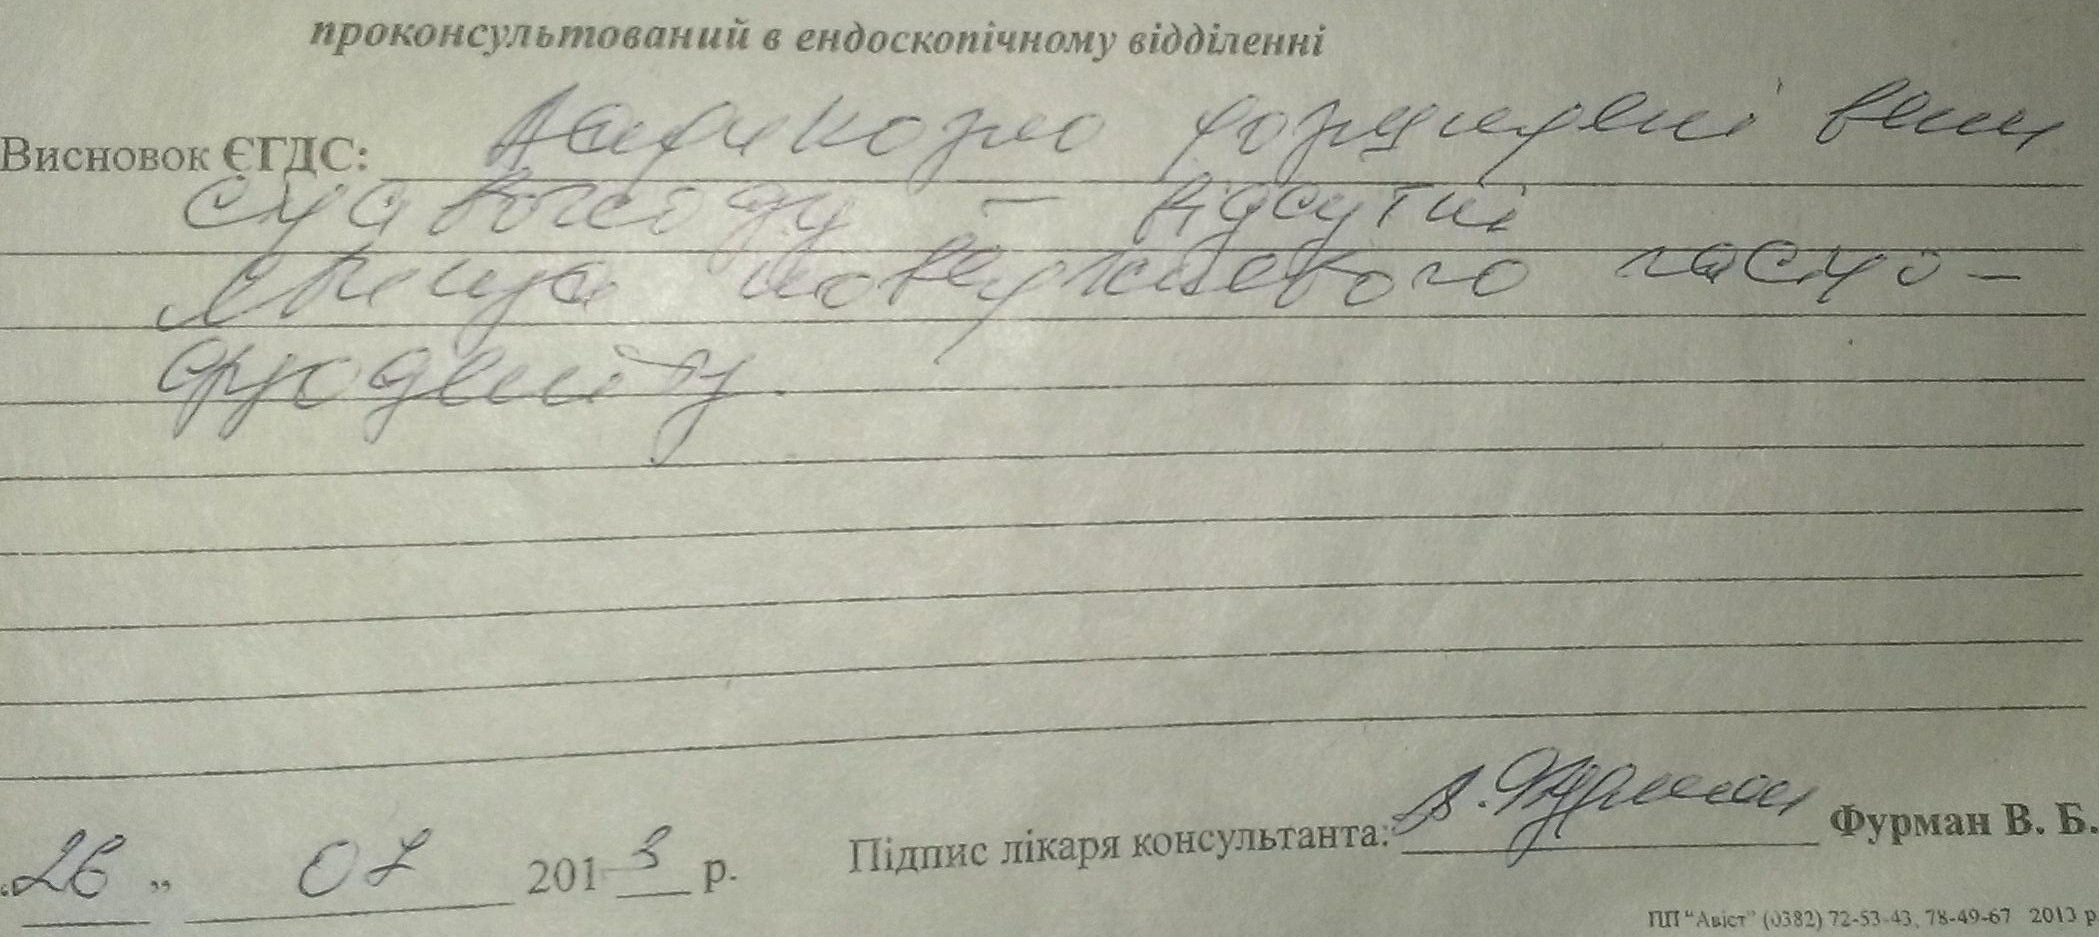 проконсультований в ендоскопічному відділенні
Висновок ЄГДС: Варикозно розширені вени
стравоходу – відсутні
Явища поверхневого гастро-
дуоденіту.
„26” 07 2013 р. Підпис лікаря консультанта: В. Фурман Фурман В. Б.
ПП “Авіст” (0382) 72-53-43, 78-49-67 2013 р